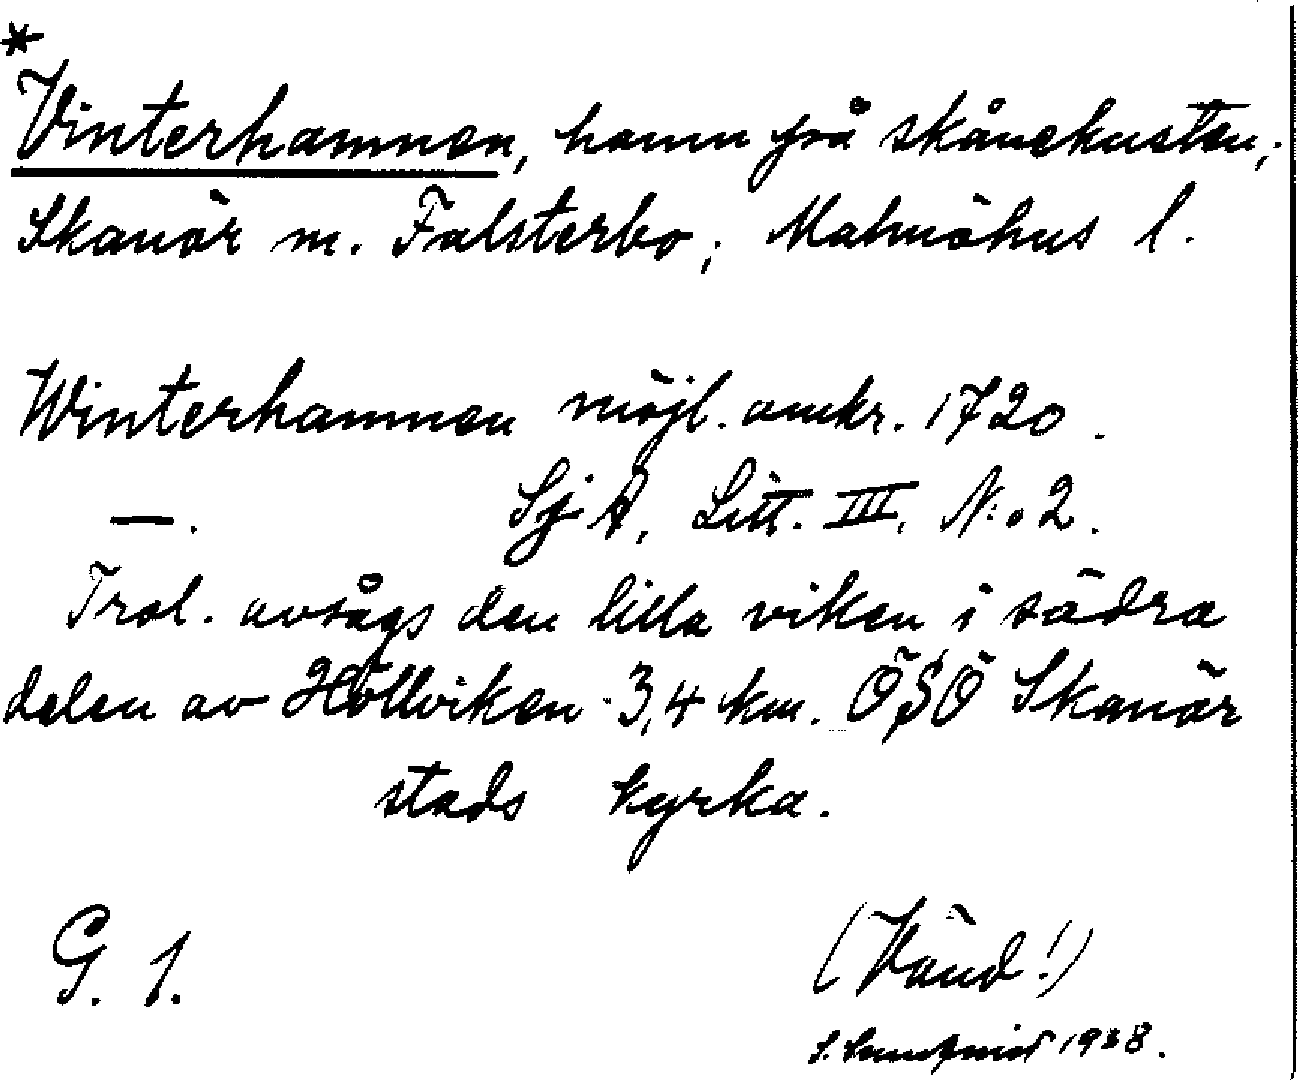 *
Vinterhamnen, hamn på skånekusten;
Skanör m. Falsterbo; Malmöhus l.
Winterhamnen möjl. omkr. 1720.
—. SjA, Litt. III, N:o 2.
Trol. avsågs den lilla viken i södra
delen av Höllviken 3,4 km. ÖSÖ Skanör
stads kyrka.
G. 1.
(Vänd!)
1938.